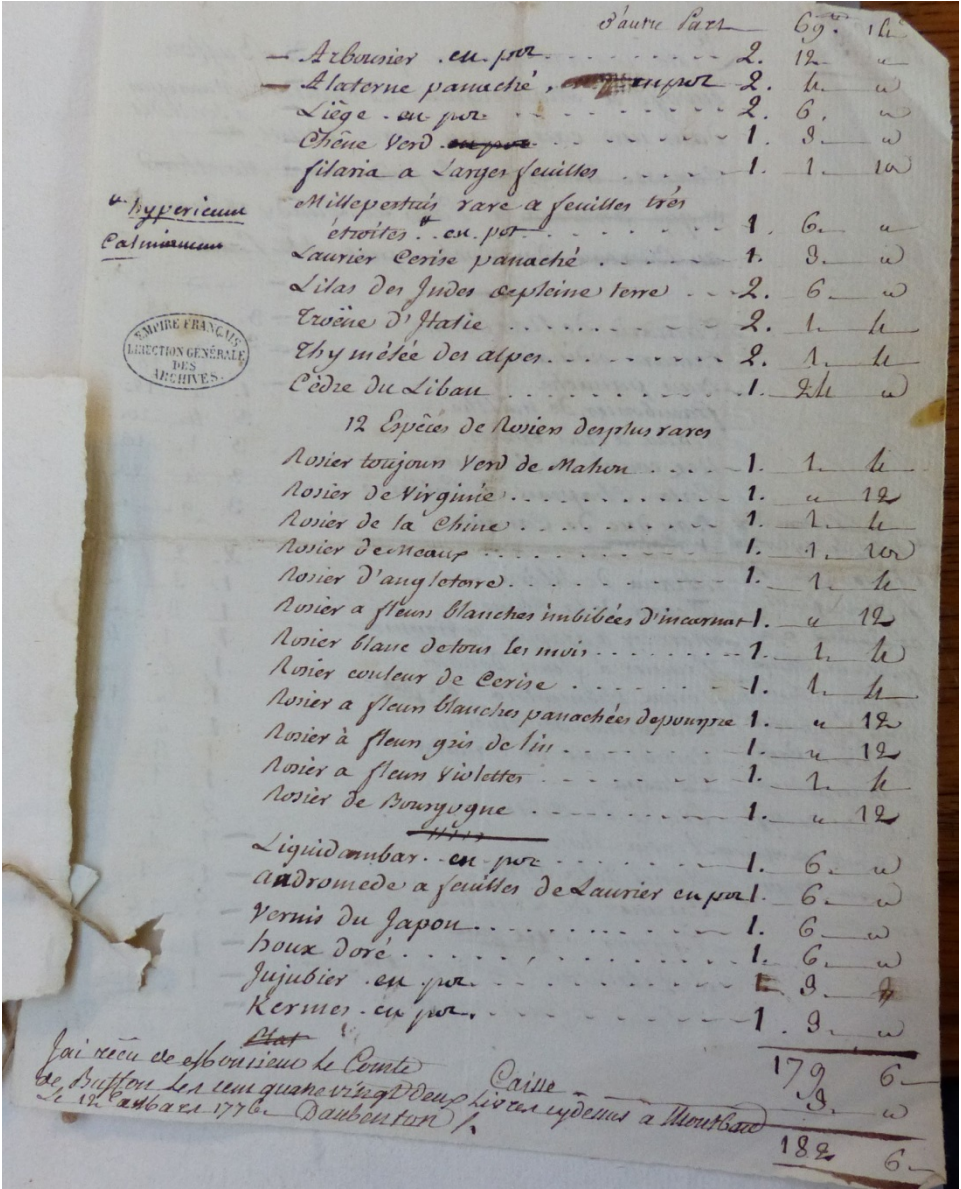 d'autre Part 69.ᵗᵗ 14
— Arbousier en pot 2. 12. "
— Alaterne panaché, en pot 2. 4. "
Liège en pot 2. 6. "
Chêne Verd en pot 1. 3. "
filaria a Larges feuilles 1. 1. 10
Millepertuis rare a feuilles très
étroites " en pot 1. 6. "
" hypericum
Calmianum
Laurier Cerise panaché 1. 3. "
Lilas des Indes de pleine terre 2. 6. "
Troëne d'Italie 2. 1. 4
Thymélée des alpes 2. 1. 4
Cèdre du Liban 1. 24 "
EMPIRE FRANÇAIS
DIRECTION GÉNÉRALE
DES
ARCHIVES.
12 Espèces de Rosiers des plus rares
Rosier toujours Verd de Mahon 1. 1. 4
Rosier de Virginie 1. " 12
Rosier de la Chine 1. 1. 4
Rosier de Meaux 1. 1. 10
Rosier d'angleterre 1. 1. 4
Rosier a fleurs blanches imbibées d'incarnat 1. " 12
Rosier blanc de tous les mois 1. 1. 4
Rosier couleur de Cerise 1. 1. 4
Rosier a fleurs blanches panachées de pourpre 1. " 12
Rosier à fleurs gris de lin 1. " 12
Rosier a fleurs Violettes 1. 1. 4
Rosier de Bourgogne 1. " 12
Liquidambar en pot 1. 6. "
andromede a feuilles de Laurier en pot 1. 6. "
Vernis du Japon 1. 6. "
houx doré 1. 6. "
Jujubier en pot 1. 3.
Kermes en pot 1. 3. "
179 6
Caisse 3. "
182 6
Jai reçu de Monsieur le Comte
de Buffon les cent quatre vingt Deux Livres cy dessus à Montbard
Le 12 Mars 1776. Daubenton